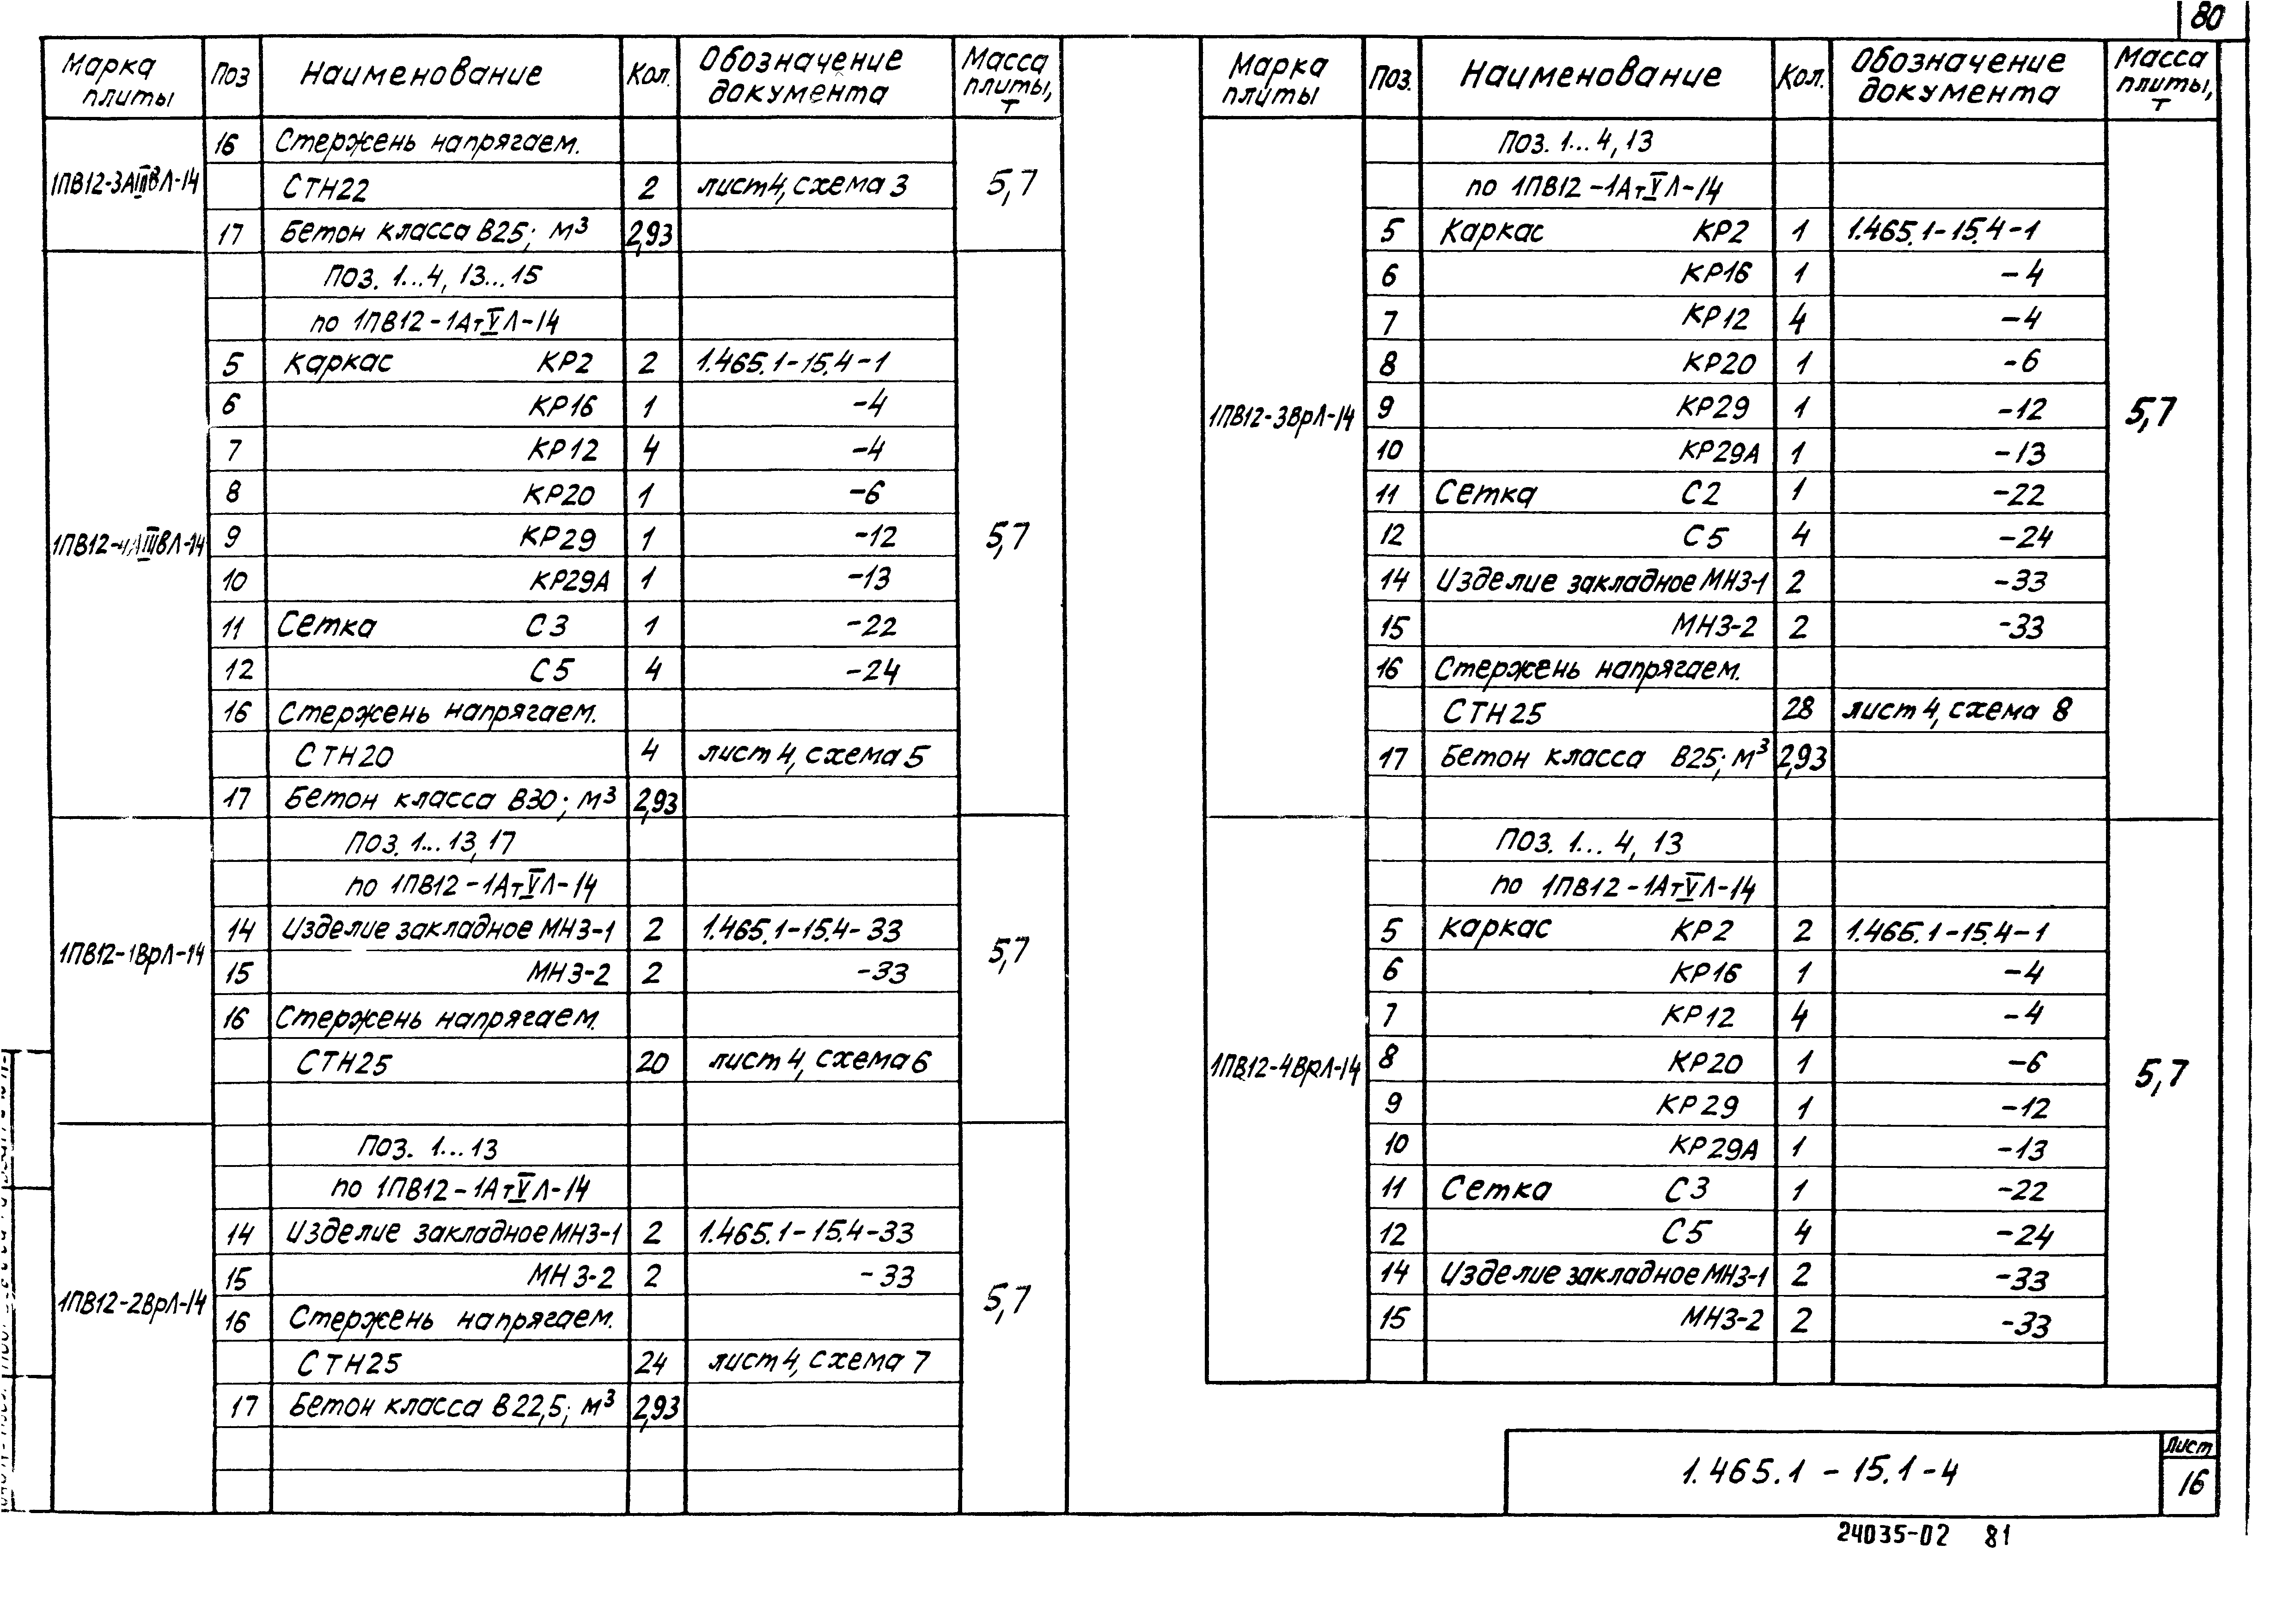 80
Марка плиты | Поз | Наименование | Кол. | Обозначение документа | Масса плиты, т
1ПВ12-3АIIIвЛ-14 | 16 | Стержень напрягаем. | 5,7
СТН22 | 2 | лист 4, схема 3
17 | Бетон класса В25; м³ | 2,93
1ПВ12-4АIIIвЛ-14 | Поз. 1...4, 13...15 | 5,7
по 1ПВ12-1АтVЛ-14
5 | Каркас КР2 | 2 | 1.465.1-15.4-1
6 | КР16 | 1 | -4
7 | КР12 | 4 | -4
8 | КР20 | 1 | -6
9 | КР29 | 1 | -12
10 | КР29А | 1 | -13
11 | Сетка С3 | 1 | -22
12 | С5 | 4 | -24
16 | Стержень напрягаем.
СТН20 | 4 | лист 4, схема 5
17 | Бетон класса В30; м³ | 2,93
1ПВ12-1ВрЛ-14 | Поз. 1...13, 17 | 5,7
по 1ПВ12-1АтVЛ-14
14 | Изделие закладное МН3-1 | 2 | 1.465.1-15.4-33
15 | МН3-2 | 2 | -33
16 | Стержень напрягаем.
СТН25 | 20 | лист 4, схема 6
1ПВ12-2ВрЛ-14 | Поз. 1...13 | 5,7
по 1ПВ12-1АтVЛ-14
14 | Изделие закладное МН3-1 | 2 | 1.465.1-15.4-33
15 | МН3-2 | 2 | -33
16 | Стержень напрягаем.
СТН25 | 24 | лист 4, схема 7
17 | Бетон класса В22,5; м³ | 2,93
Марка плиты | Поз. | Наименование | Кол. | Обозначение документа | Масса плиты, т
1ПВ12-3ВрЛ-14 | Поз. 1...4, 13 | 5,7
по 1ПВ12-1АтVЛ-14
5 | Каркас КР2 | 1 | 1.465.1-15.4-1
6 | КР16 | 1 | -4
7 | КР12 | 4 | -4
8 | КР20 | 1 | -6
9 | КР29 | 1 | -12
10 | КР29А | 1 | -13
11 | Сетка С2 | 1 | -22
12 | С5 | 4 | -24
14 | Изделие закладное МН3-1 | 2 | -33
15 | МН3-2 | 2 | -33
16 | Стержень напрягаем.
СТН25 | 28 | лист 4, схема 8
17 | Бетон класса В25; м³ | 2,93
1ПВ12-4ВрЛ-14 | Поз. 1... 4, 13 | 5,7
по 1ПВ12-1АтVЛ-14
5 | Каркас КР2 | 2 | 1.465.1-15.4-1
6 | КР16 | 1 | -4
7 | КР12 | 4 | -4
8 | КР20 | 1 | -6
9 | КР29 | 1 | -12
10 | КР29А | 1 | -13
11 | Сетка С3 | 1 | -22
12 | С5 | 4 | -24
14 | Изделие закладное МН3-1 | 2 | -33
15 | МН3-2 | 2 | -33
1.465.1-15.1-4
Лист
16
24035-02 81